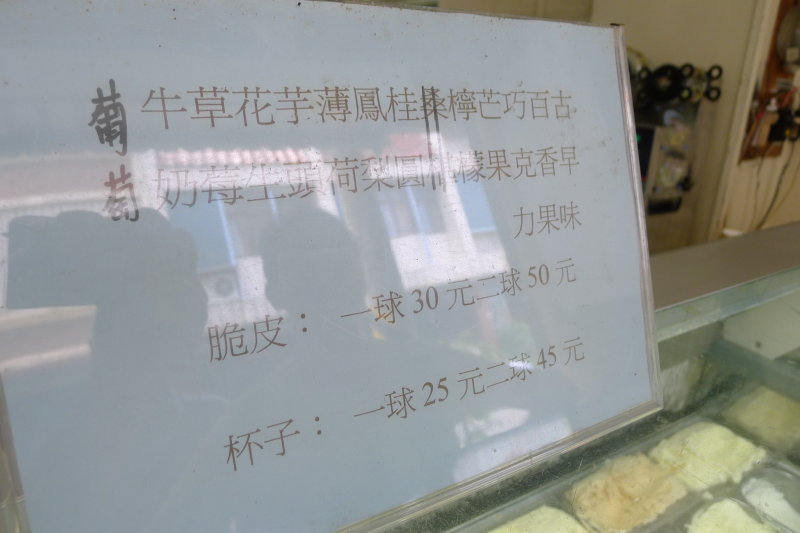 古早味
百香果
巧克力
芒果
檸檬
桑
桂圓
鳳梨
薄荷
芋頭
花生
草莓
牛奶
葡萄
脆皮： 一球 30 元二球 50 元
杯子： 一球 25 元二球 45 元